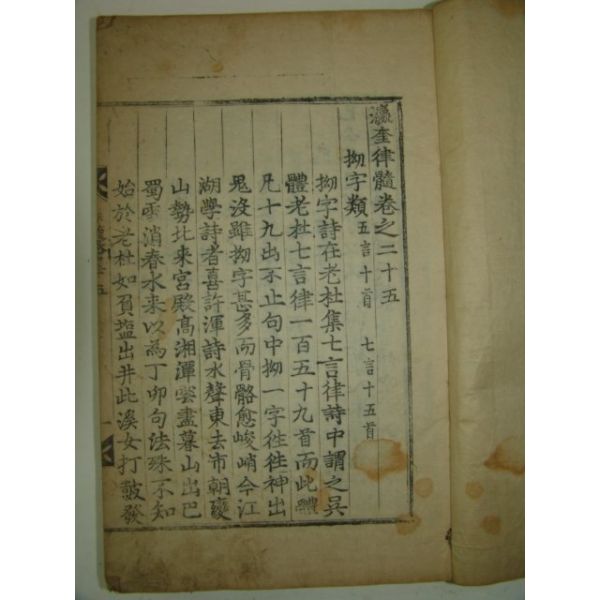 瀛奎律髓卷之二十五
拗字類 五言十首 七言十五首
拗字詩在老杜集七言律詩中謂之吳
體老杜七言律一百五十九首而此體
凡十九出不止句中拗一字徃徃神出
鬼沒雖拗字甚多而骨骼愈峻峭今江
湖學詩者喜許渾詩水聲東去市朝變
山勢北來宮殿高湘潭雲盡暮山出巴
蜀雪消春水来以為丁卯句法殊不知
始於老杜如負塩出井此溪女打皷發